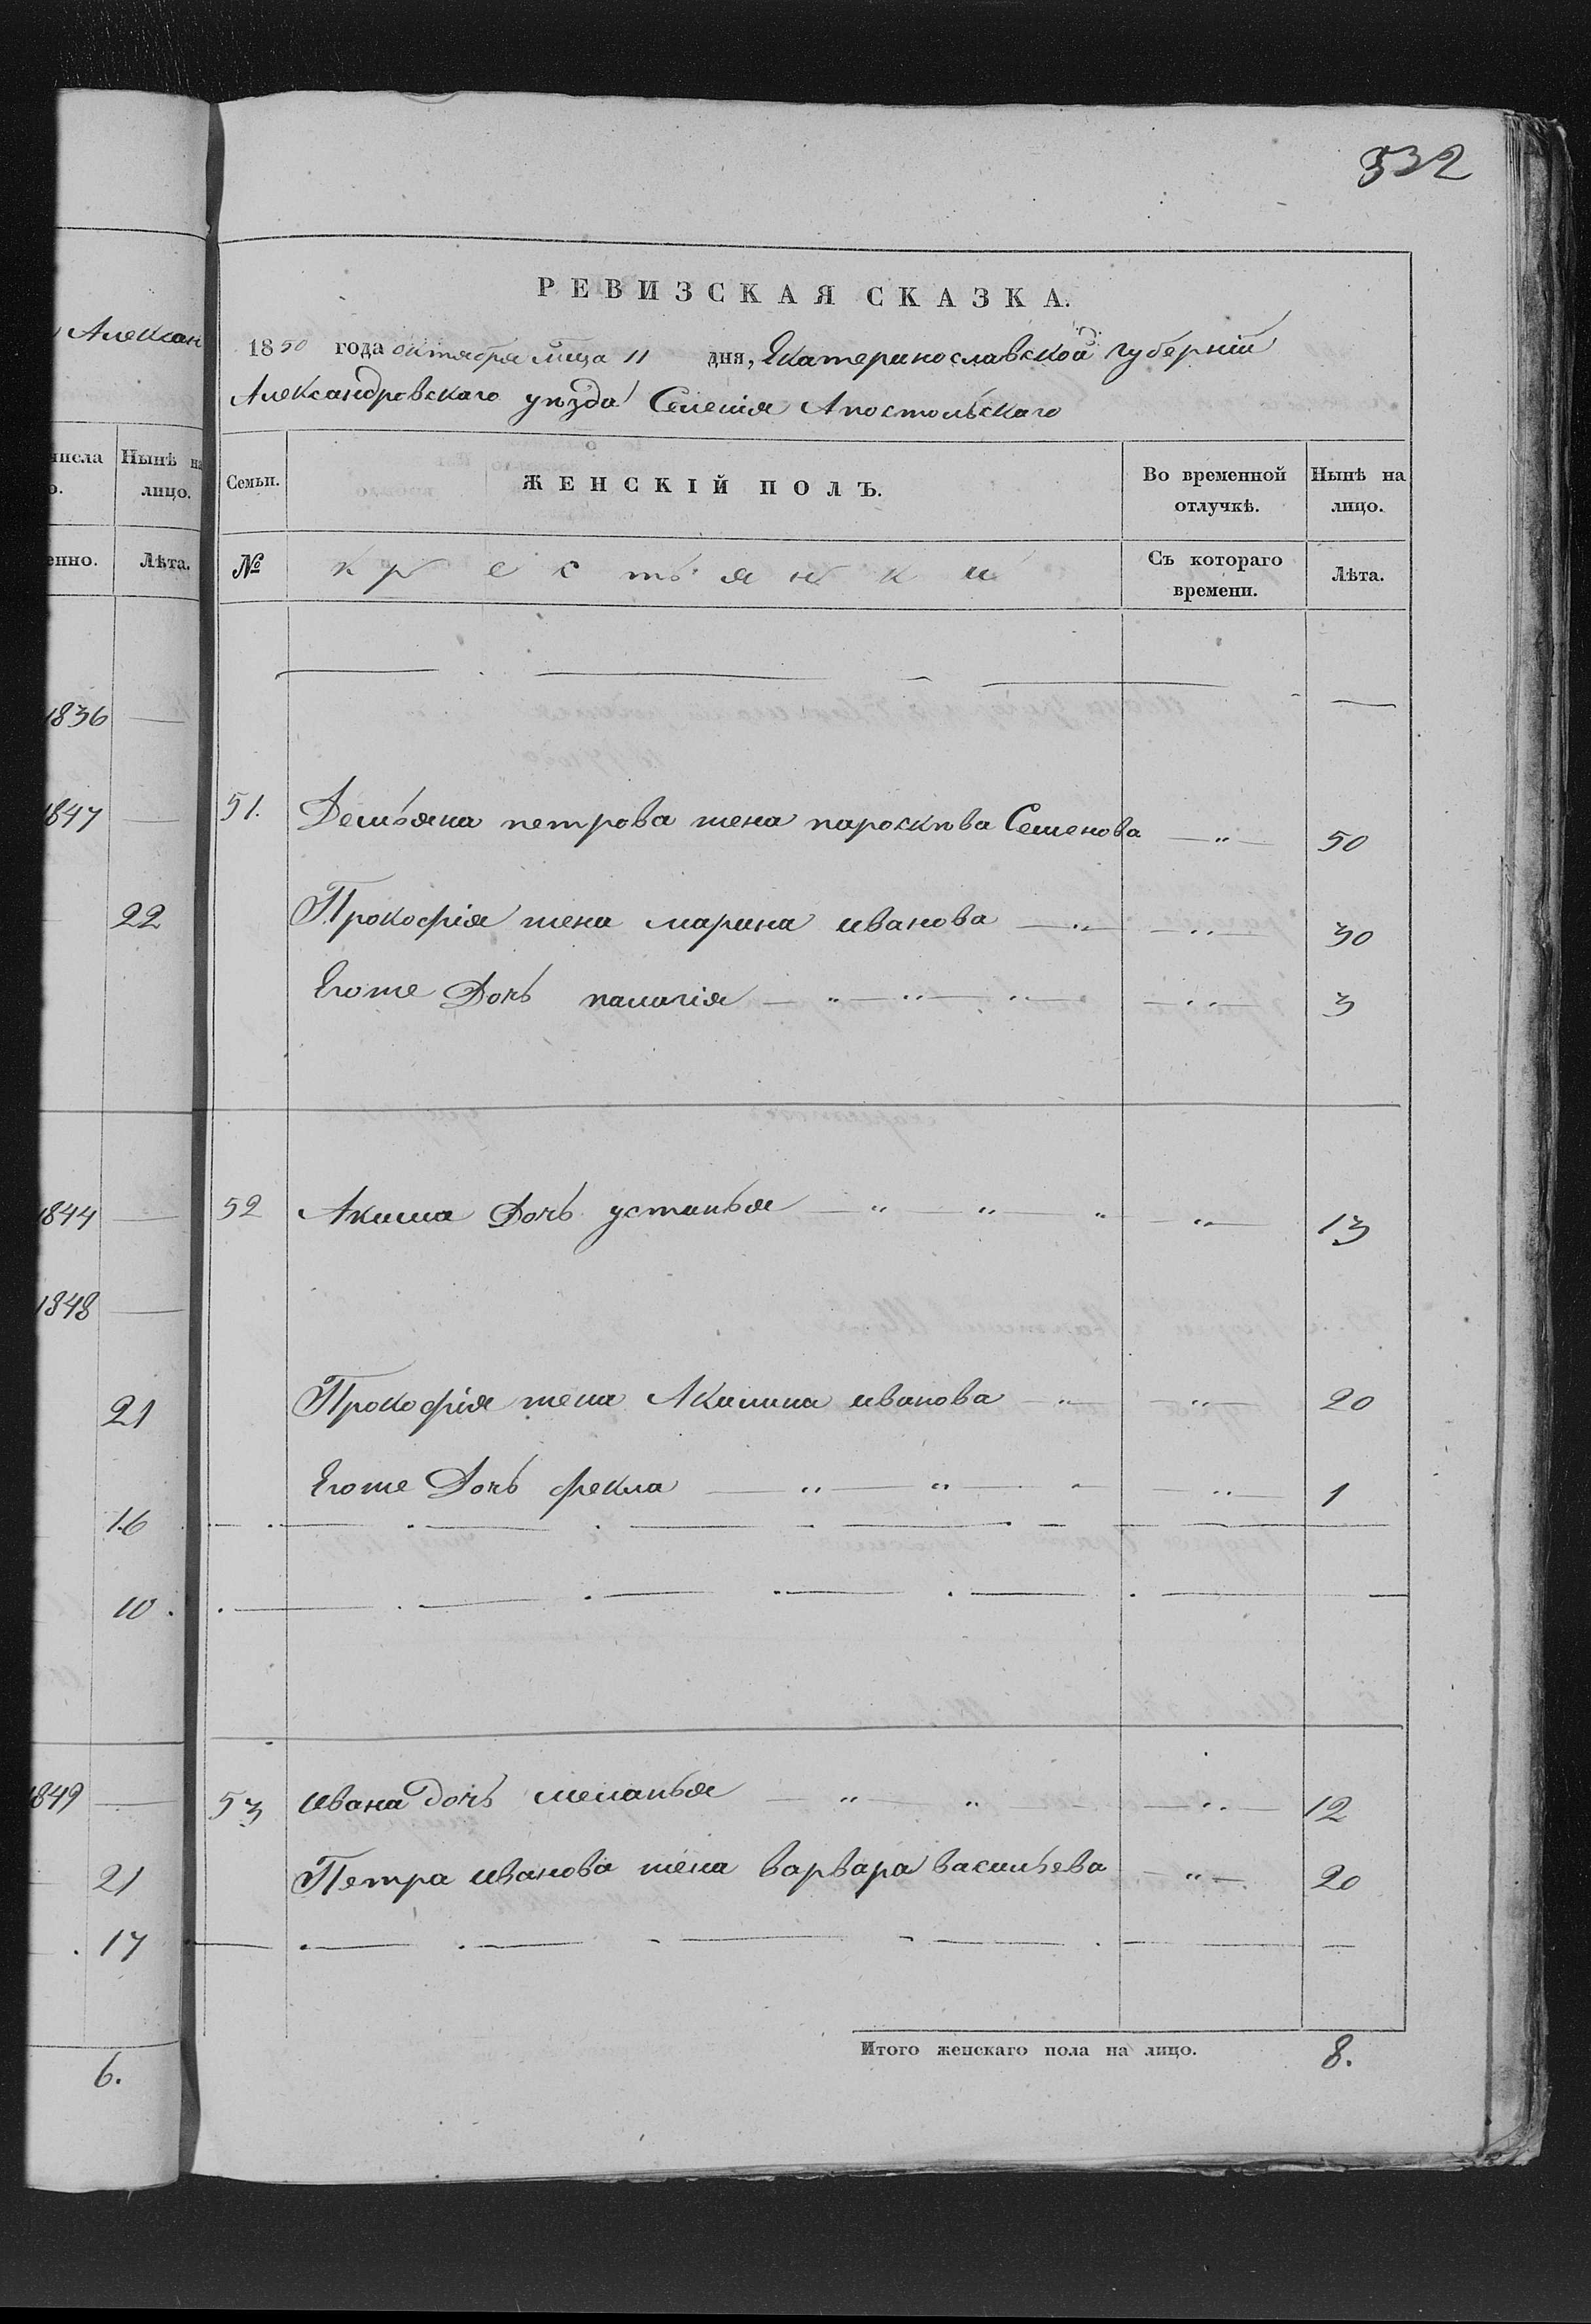 532
Алексан
РЕВИЗСКАЯ СКАЗКА.
1850 года октября мѣца 11 дня, Екатеринославской губерніи
Александровскаго уѣзда Селенія Апостольскаго
числа
о.
Нынѣ на
лицо.
енно.
Лѣта.
Семьи.
ЖЕНСКІЙ ПОЛЪ.
Во временной
отлучкѣ.
Нынѣ на
лицо.
№
крестьянки
Съ котораго
времени.
Лѣта.
1836 —
1847 —
51. Демьяна петрова жена пароскѣва Семенова — „ — 50
22
Прокофія жена марина иванова — „ — 30
Егоже Дочь палагія — „ — „ — „ — 3
1844 —
52 Акима Дочь устинья — „ — „ — „ — 13
1848 —
21
Прокофія жена Акилина иванова — „ — 20
Егоже Дочь фекла — „ — „ — „ — 1
16
10.
1849 —
53 ивана дочь меланья — „ — „ — 12
21
Петра иванова жена варвара васильева — „ — 20
17
Итого женскаго пола на лицо. 8.
6.